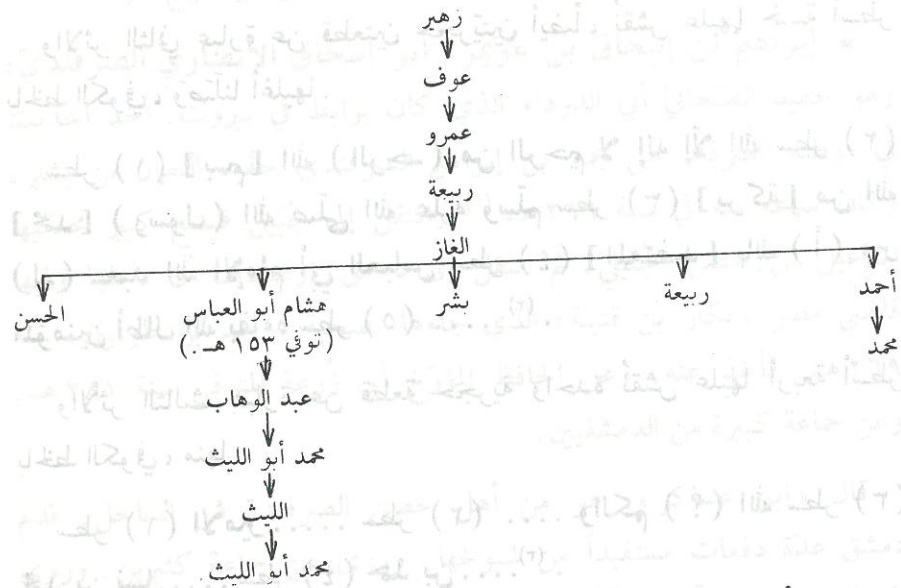 زهير
عوف
عمرو
ربيعة
الغاز
أحمد
ربيعة
بشر
هشام أبو العباس
(توفي ١٥٣ هـ.)
الحسن
محمد
عبد الوهاب
محمد أبو الليث
الليث
محمد أبو الليث.